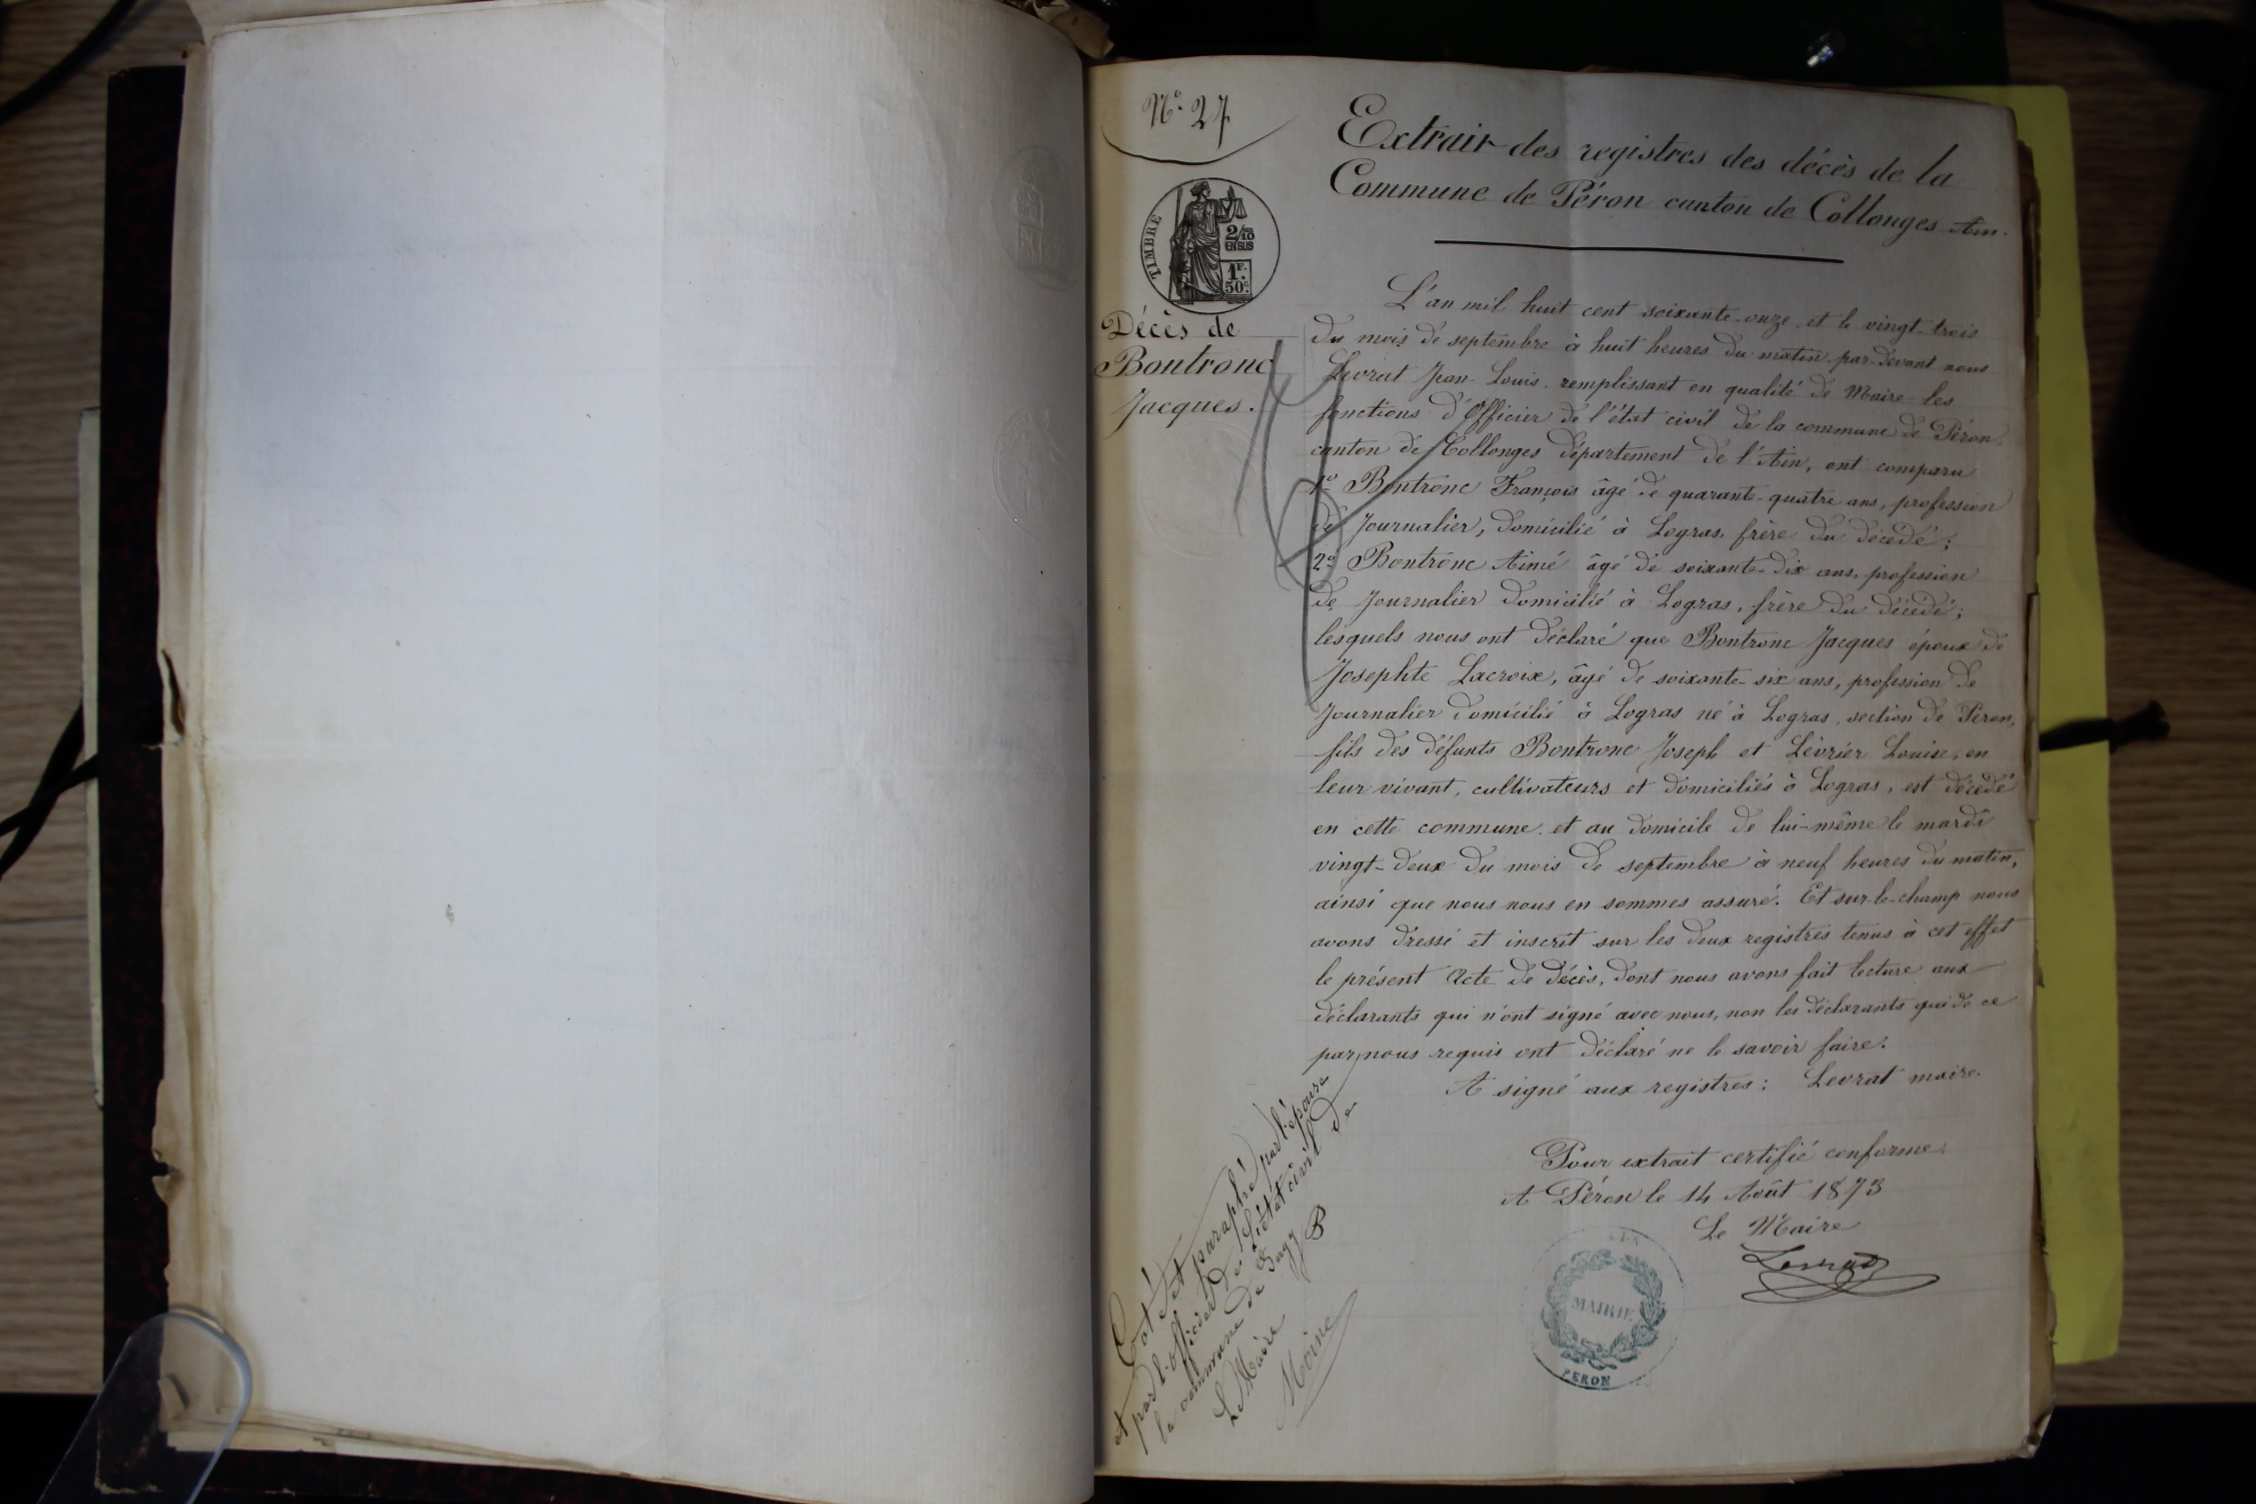 N.° 27
TIMBRE
2/10
EN SUS
1F.
50c.
Décès de
Bontronc
Jacques.
Extrait des registres des décès de la
Commune de Péron canton de Collonges Ain.
L'an mil huit cent soixante-onze et le vingt-trois
du mois de septembre à huit heures du matin par-devant nous
Levrat Jean-Louis remplissant en qualité de Maire les
fonctions d'Officier de l'état civil de la commune de Péron
canton de Collonges département de l'Ain, ont comparu
1° Bontronc François âgé de quarante-quatre ans, profession
de Journalier, domicilié à Logras, frère du décédé;
2° Bontronc Aimé âgé de soixante-dix ans, profession
de Journalier domicilié à Logras, frère du décédé;
lesquels nous ont déclaré que Bontronc Jacques époux de
Josephte Lacroix, âgé de soixante-six ans, profession de
Journalier domicilié à Logras né à Logras, section de Péron,
fils des défunts Bontronc Joseph et Levrier Louise, en
leur vivant, cultivateurs et domiciliés à Logras, est décédé
en cette commune et au domicile de lui-même le mardi
vingt-deux du mois de septembre à neuf heures du matin,
ainsi que nous nous en sommes assuré. Et sur-le-champ nous
avons dressé et inscrit sur les deux registres tenus à cet effet
le présent Acte de décès, dont nous avons fait lecture aux
déclarants qui n'ont signé avec nous, non les déclarants qui de ce
par nous requis ont déclaré ne le savoir faire.
A signé aux registres: Levrat maire.
Pour extrait certifié conforme
A Péron le 14 Août 1873
Le Maire
Levrat
MAIRIE
PERON
Coté et paraphé par l'épouse
et par l'officier de l'état civil de
la commune de
Le Maire
B
Moine